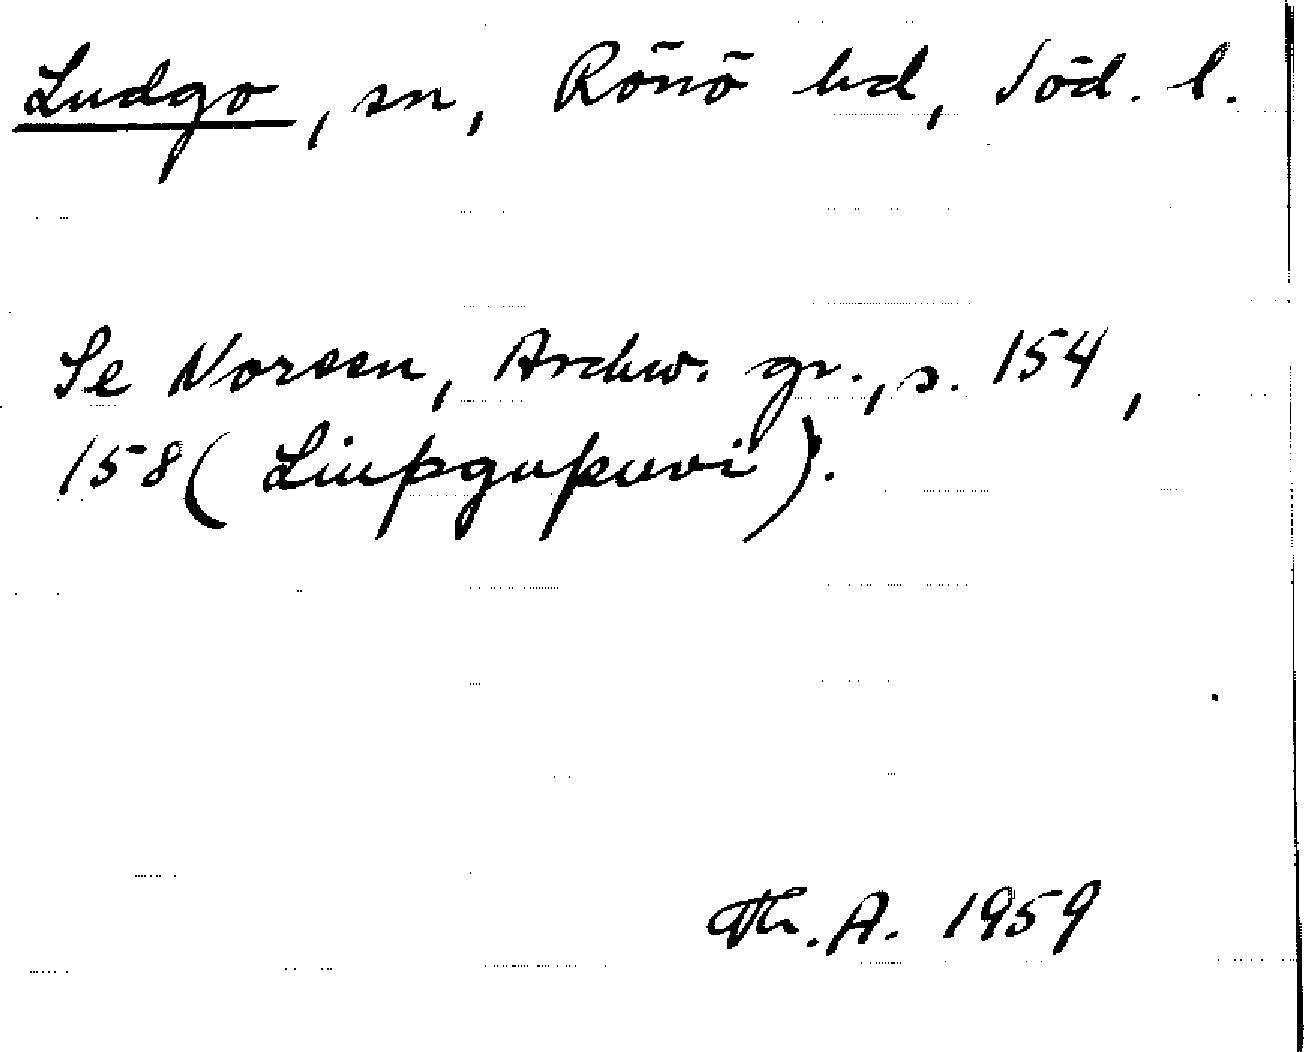 Ludgo, sn, Rönö hd, Söd. l.
Se Noreen, Aschw. gr., s. 154,
158 (Liuþguþuvi).
Th. A. 1959